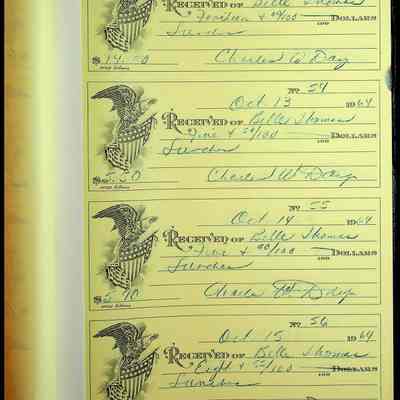 RECEIVED OF Belle Thomas
Fourteen & 00/100 DOLLARS
Lunches
$14.00 Charles W Day
No 54
Oct 13 1964
RECEIVED OF Belle Thomas
Five & 50/100 DOLLARS
Lunches
$5.50 Charles W Day
No 55
Oct 14 1964
RECEIVED OF Belle Thomas
Five & /100 DOLLARS
Lunches
$5.10 Charles W Day
No 56
Oct 15 1964
RECEIVED OF Belle Thomas
Eight & /100 DOLLARS
Lunches